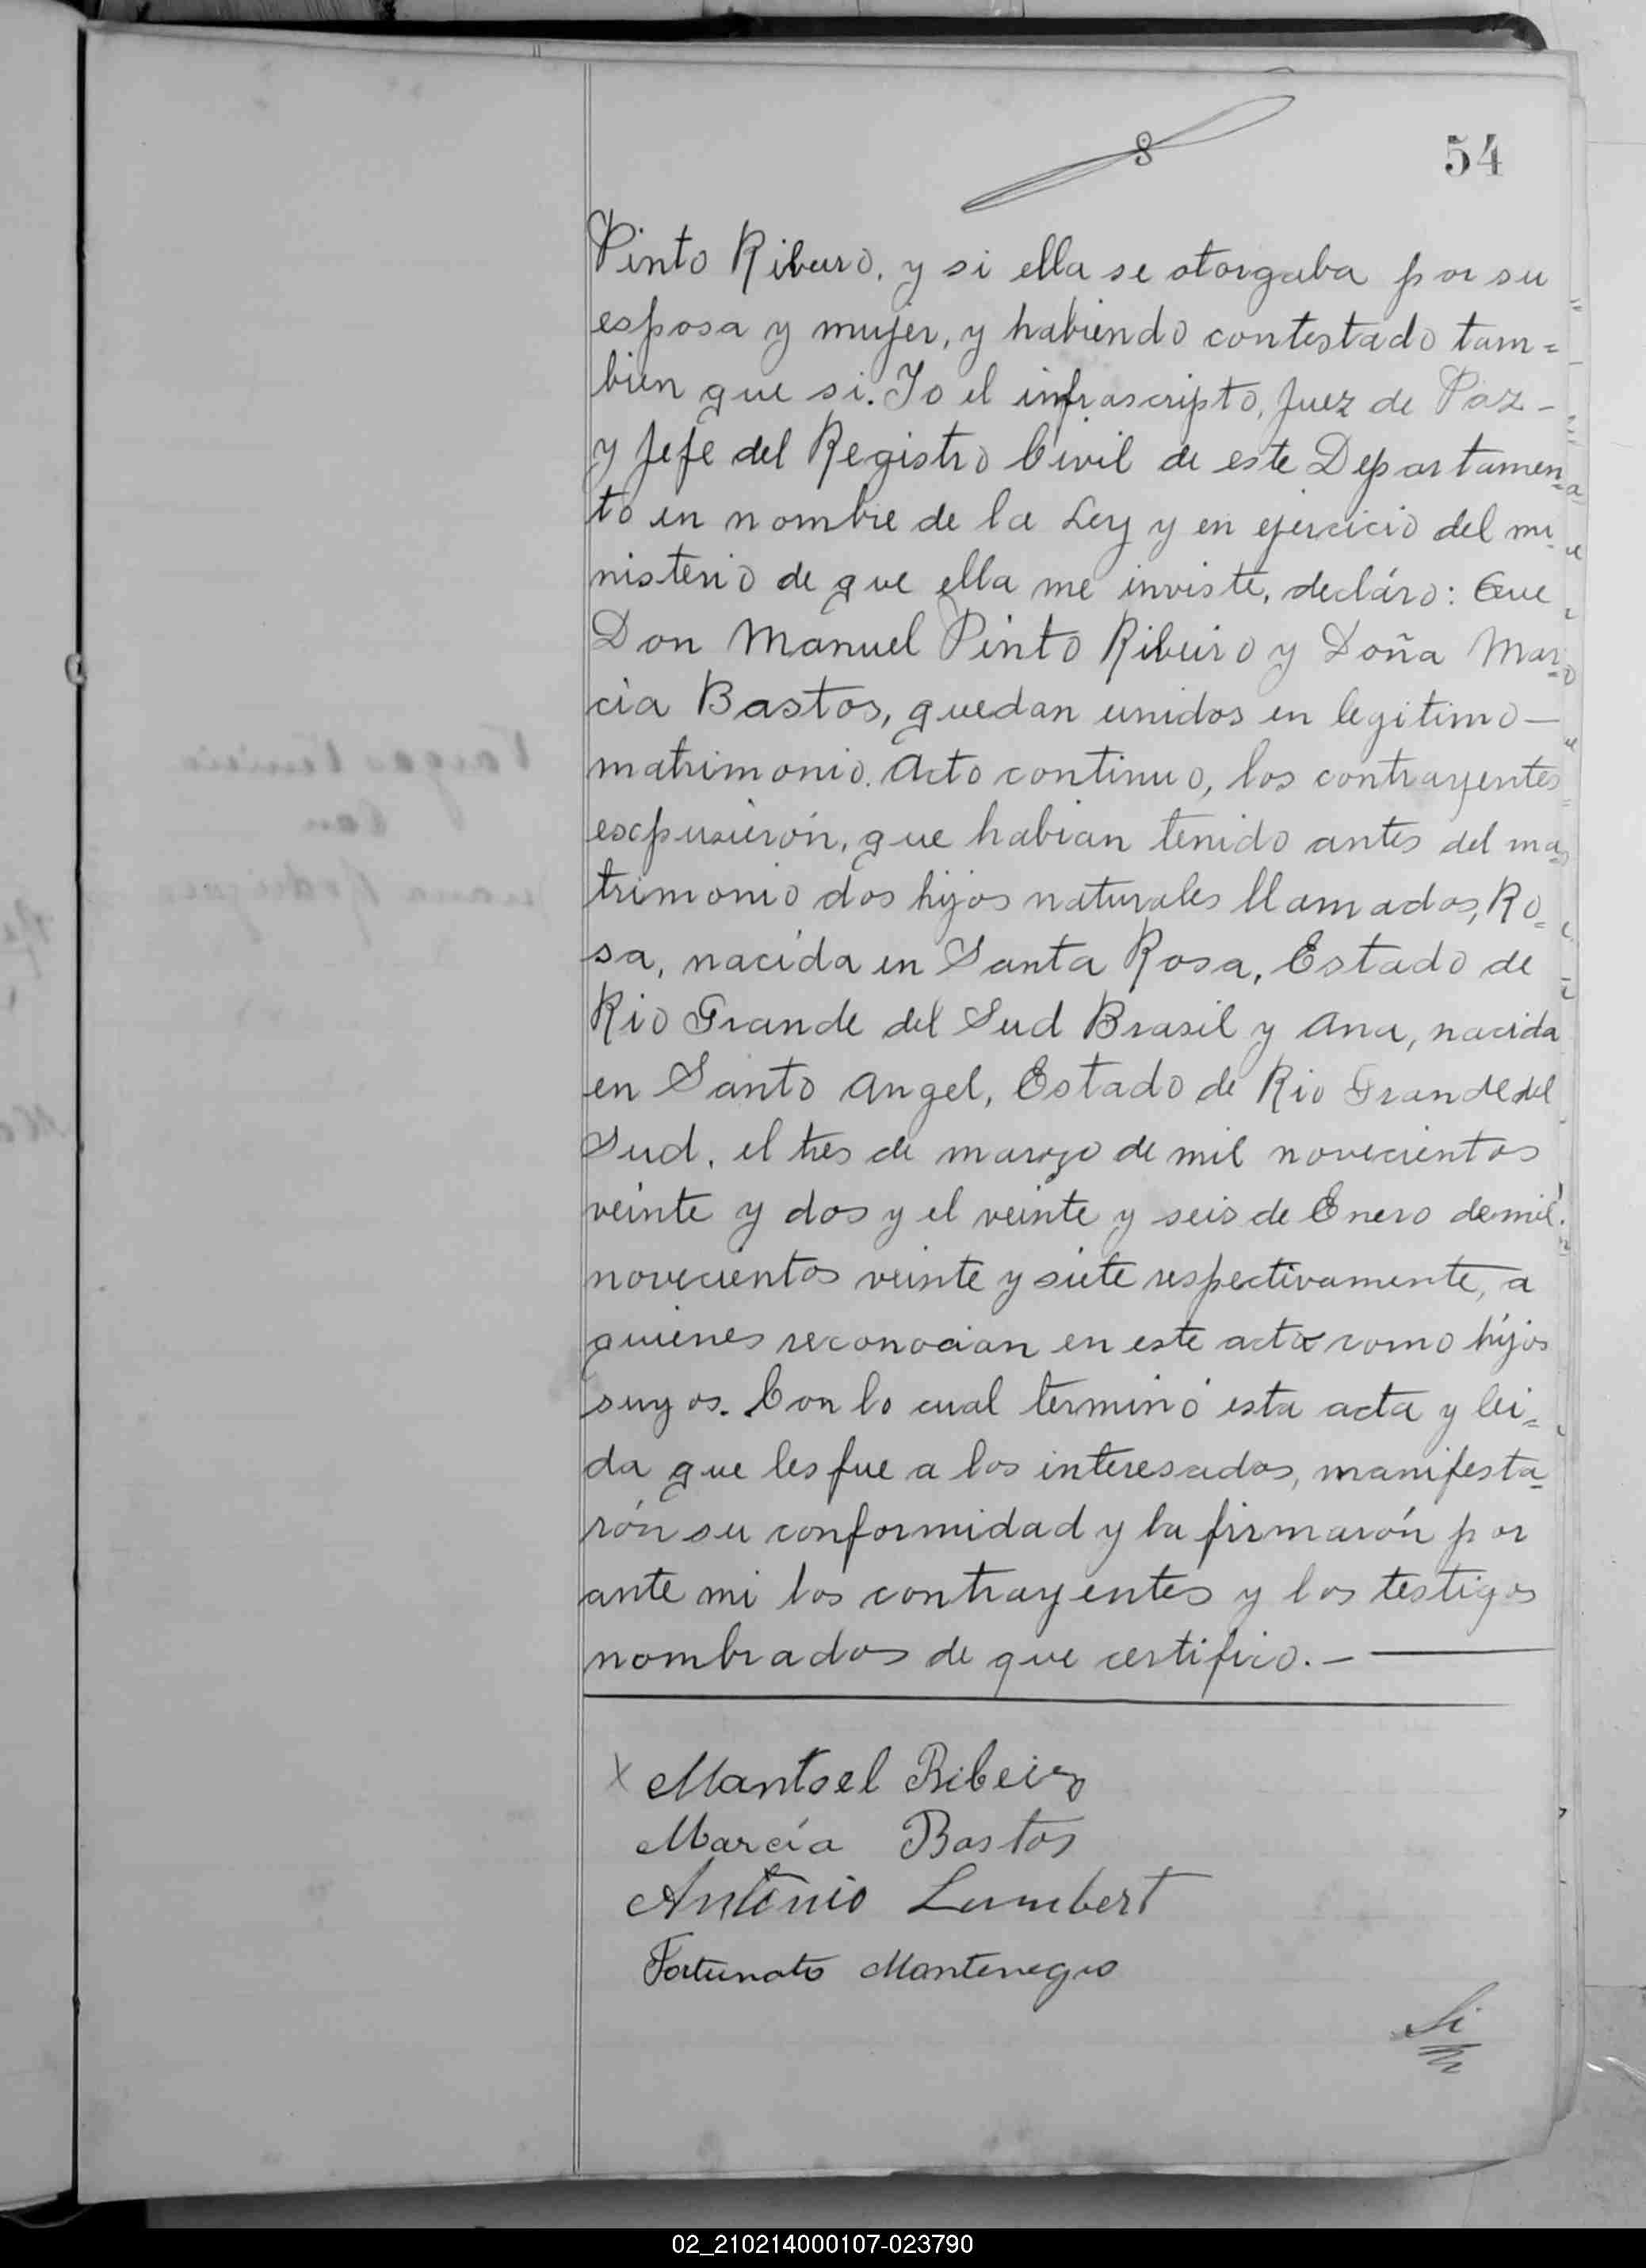 54
Pinto Ribeiro, y si ella se otorgaba por su
esposa y mujer, y habiendo contestado tam=
bien que si. Yo el infrascripto, Juez de Paz -
y Jefe del Registro Civil de este Departamen=
to en nombre de la Ley y en ejercicio del mi=
nisterio de que ella me inviste, decláro: Que
Don Manuel Pinto Ribeiro y Doña Mar=
cia Bastos, quedan unidos en legitimo —
matrimonio. Acto continuo, los contrayentes
escpusierón, que habian tenido antes del ma=
trimonio dos hijos naturales llamados, Ro=
sa, nacida en Santa Rosa, Estado de
Rio Grande del Sud Brasil y Ana, nacida
en Santo Angel, Estado de Rio Grande del
Sud, el tres de marzo de mil novecientos
veinte y dos y el veinte y seis de Enero de mil
novecientos veinte y siete respectivamente, a
quienes reconocian en este acto como hijos
suyos. Con lo cual terminó esta acta y lei=
da que les fue a los interesados, manifesta=
rón su conformidad y la firmarón por
ante mi los contrayentes y los testigos
nombrados de que certifico. —
x Mantoel Ribeiro
Marcía Bastos
Antonio Lumbert
Fortunato Montenegro
02_210214000107-023790